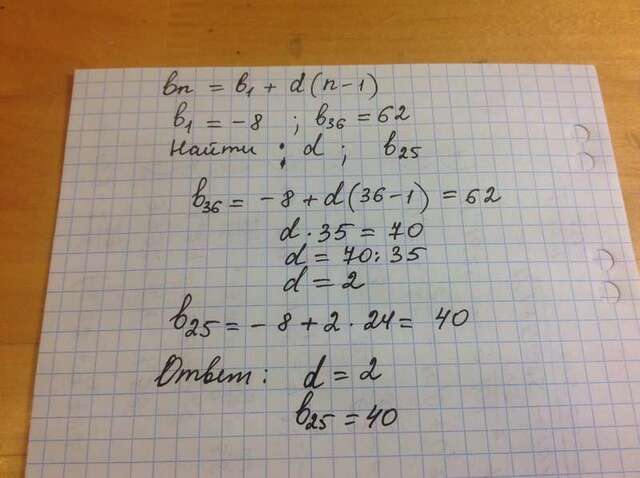 bn = b₁ + d(n-1)
b₁ = -8 ; b₃₆ = 62
Найти : d ; b₂₅
b₃₆ = -8 + d(36-1) = 62
d · 35 = 70
d = 70 : 35
d = 2
b₂₅ = -8 + 2 · 24 = 40
Ответ: d = 2
b₂₅ = 40